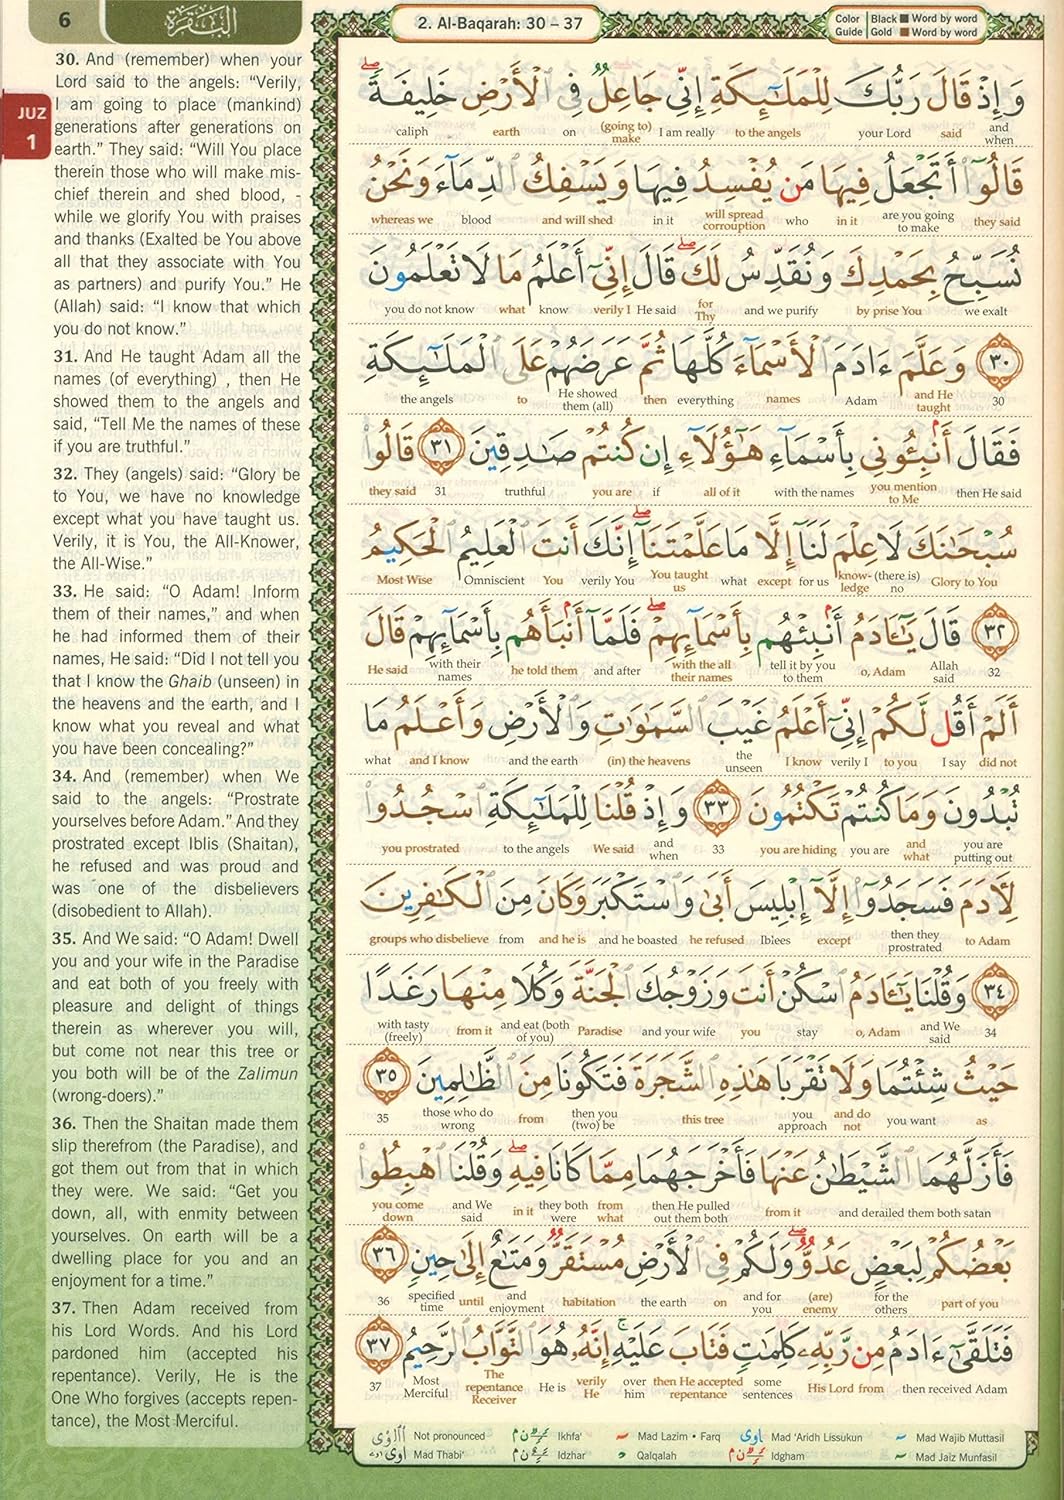 6
البقرة
JUZ
1
30. And (remember) when your
Lord said to the angels: “Verily,
I am going to place (mankind)
generations after generations on
earth.” They said: “Will You place
therein those who will make mis-
chief therein and shed blood, -
while we glorify You with praises
and thanks (Exalted be You above
all that they associate with You
as partners) and purify You.” He
(Allah) said: “I know that which
you do not know.”
31. And He taught Adam all the
names (of everything) , then He
showed them to the angels and
said, “Tell Me the names of these
if you are truthful.”
32. They (angels) said: “Glory be
to You, we have no knowledge
except what you have taught us.
Verily, it is You, the All-Knower,
the All-Wise.”
33. He said: “O Adam! Inform
them of their names,” and when
he had informed them of their
names, He said: “Did I not tell you
that I know the Ghaib (unseen) in
the heavens and the earth, and I
know what you reveal and what
you have been concealing?”
34. And (remember) when We
said to the angels: “Prostrate
yourselves before Adam.” And they
prostrated except Iblis (Shaitan),
he refused and was proud and
was one of the disbelievers
(disobedient to Allah).
35. And We said: “O Adam! Dwell
you and your wife in the Paradise
and eat both of you freely with
pleasure and delight of things
therein as wherever you will,
but come not near this tree or
you both will be of the Zalimun
(wrong-doers).”
36. Then the Shaitan made them
slip therefrom (the Paradise), and
got them out from that in which
they were. We said: “Get you
down, all, with enmity between
yourselves. On earth will be a
dwelling place for you and an
enjoyment for a time.”
37. Then Adam received from
his Lord Words. And his Lord
pardoned him (accepted his
repentance). Verily, He is the
One Who forgives (accepts repen-
tance), the Most Merciful.
2. Al-Baqarah: 30 – 37
Color Guide Black Word by word
Gold Word by word
وَإِذْ قَالَ رَبُّكَ لِلْمَلَٰٓئِكَةِ إِنِّى جَاعِلٌ فِى ٱلْأَرْضِ خَلِيفَةً ۖ
caliph earth on (going to) make I am really to the angels your Lord said and when
قَالُوٓا۟ أَتَجْعَلُ فِيهَا مَن يُفْسِدُ فِيهَا وَيَسْفِكُ ٱلدِّمَآءَ وَنَحْنُ
whereas we blood and will shed in it will spread corrouption who in it are you going to make they said
نُسَبِّحُ بِحَمْدِكَ وَنُقَدِّسُ لَكَ ۖ قَالَ إِنِّىٓ أَعْلَمُ مَا لَا تَعْلَمُونَ
you do not know what know verily I He said for Thy and we purify by prise You we exalt
٣٠ وَعَلَّمَ ءَادَمَ ٱلْأَسْمَآءَ كُلَّهَا ثُمَّ عَرَضَهُمْ عَلَى ٱلْمَلَٰٓئِكَةِ
the angels to He showed them (all) then everything names Adam and He taught 30
فَقَالَ أَنۢبِـُٔونِى بِأَسْمَآءِ هَٰٓؤُلَآءِ إِن كُنتُمْ صَٰدِقِينَ ٣١ قَالُوا۟
they said 31 truthful you are if all of it with the names you mention to Me then He said
سُبْحَٰنَكَ لَا عِلْمَ لَنَآ إِلَّا مَا عَلَّمْتَنَآ ۖ إِنَّكَ أَنتَ ٱلْعَلِيمُ ٱلْحَكِيمُ
Most Wise Omniscient You verily You You taught us what except for us know-ledge (there is) no Glory to You
٣٢ قَالَ يَٰٓـَٔادَمُ أَنۢبِئْهُم بِأَسْمَآئِهِمْ ۖ فَلَمَّآ أَنۢبَأَهُم بِأَسْمَآئِهِمْ قَالَ
He said with their names he told them and after with the all their names tell it by you to them o, Adam Allah said 32
أَلَمْ أَقُل لَّكُمْ إِنِّىٓ أَعْلَمُ غَيْبَ ٱلسَّمَٰوَٰتِ وَٱلْأَرْضِ وَأَعْلَمُ مَا
what and I know and the earth (in) the heavens the unseen I know verily I to you I say did not
تُبْدُونَ وَمَا كُنتُمْ تَكْتُمُونَ ٣٣ وَإِذْ قُلْنَا لِلْمَلَٰٓئِكَةِ ٱسْجُدُوا۟
you prostrated to the angels We said and when 33 you are hiding you are and what you are putting out
لِـَٔادَمَ فَسَجَدُوٓا۟ إِلَّآ إِبْلِيسَ أَبَىٰ وَٱسْتَكْبَرَ وَكَانَ مِنَ ٱلْكَٰفِرِينَ
groups who disbelieve from and he is and he boasted he refused Iblees except then they prostrated to Adam
٣٤ وَقُلْنَا يَٰٓـَٔادَمُ ٱسْكُنْ أَنتَ وَزَوْجُكَ ٱلْجَنَّةَ وَكُلَا مِنْهَا رَغَدًا
with tasty (freely) from it and eat (both of you) Paradise and your wife you stay o, Adam and We said 34
حَيْثُ شِئْتُمَا وَلَا تَقْرَبَا هَٰذِهِ ٱلشَّجَرَةَ فَتَكُونَا مِنَ ٱلظَّٰلِمِينَ ٣٥
35 those who do wrong from then you (two) be this tree you approach and do not you want as
فَأَزَلَّهُمَا ٱلشَّيْطَٰنُ عَنْهَا فَأَخْرَجَهُمَا مِمَّا كَانَا فِيهِ ۖ وَقُلْنَا ٱهْبِطُوا۟
you come down and We said in it they both were from what then He pulled out them both from it and derailed them both satan
بَعْضُكُمْ لِبَعْضٍ عَدُوٌّ ۖ وَلَكُمْ فِى ٱلْأَرْضِ مُسْتَقَرٌّ وَمَتَٰعٌ إِلَىٰ حِينٍ ٣٦
36 specified time until and enjoyment habitation the earth on and for you (are) enemy for the others part of you
فَتَلَقَّىٰٓ ءَادَمُ مِن رَّبِّهِۦ كَلِمَٰتٍ فَتَابَ عَلَيْهِ ۚ إِنَّهُۥ هُوَ ٱلتَّوَّابُ ٱلرَّحِيمُ ٣٧
37 Most Merciful The repentance Receiver He is verily He over him then He accepted repentance some sentences His Lord from then received Adam
Not pronounced Ikhfa' Mad Lazim • Farq Mad 'Aridh Lissukun Mad Wajib Muttasil
Mad Thabi' Idzhar Qalqalah Idgham Mad Jaiz Munfasil